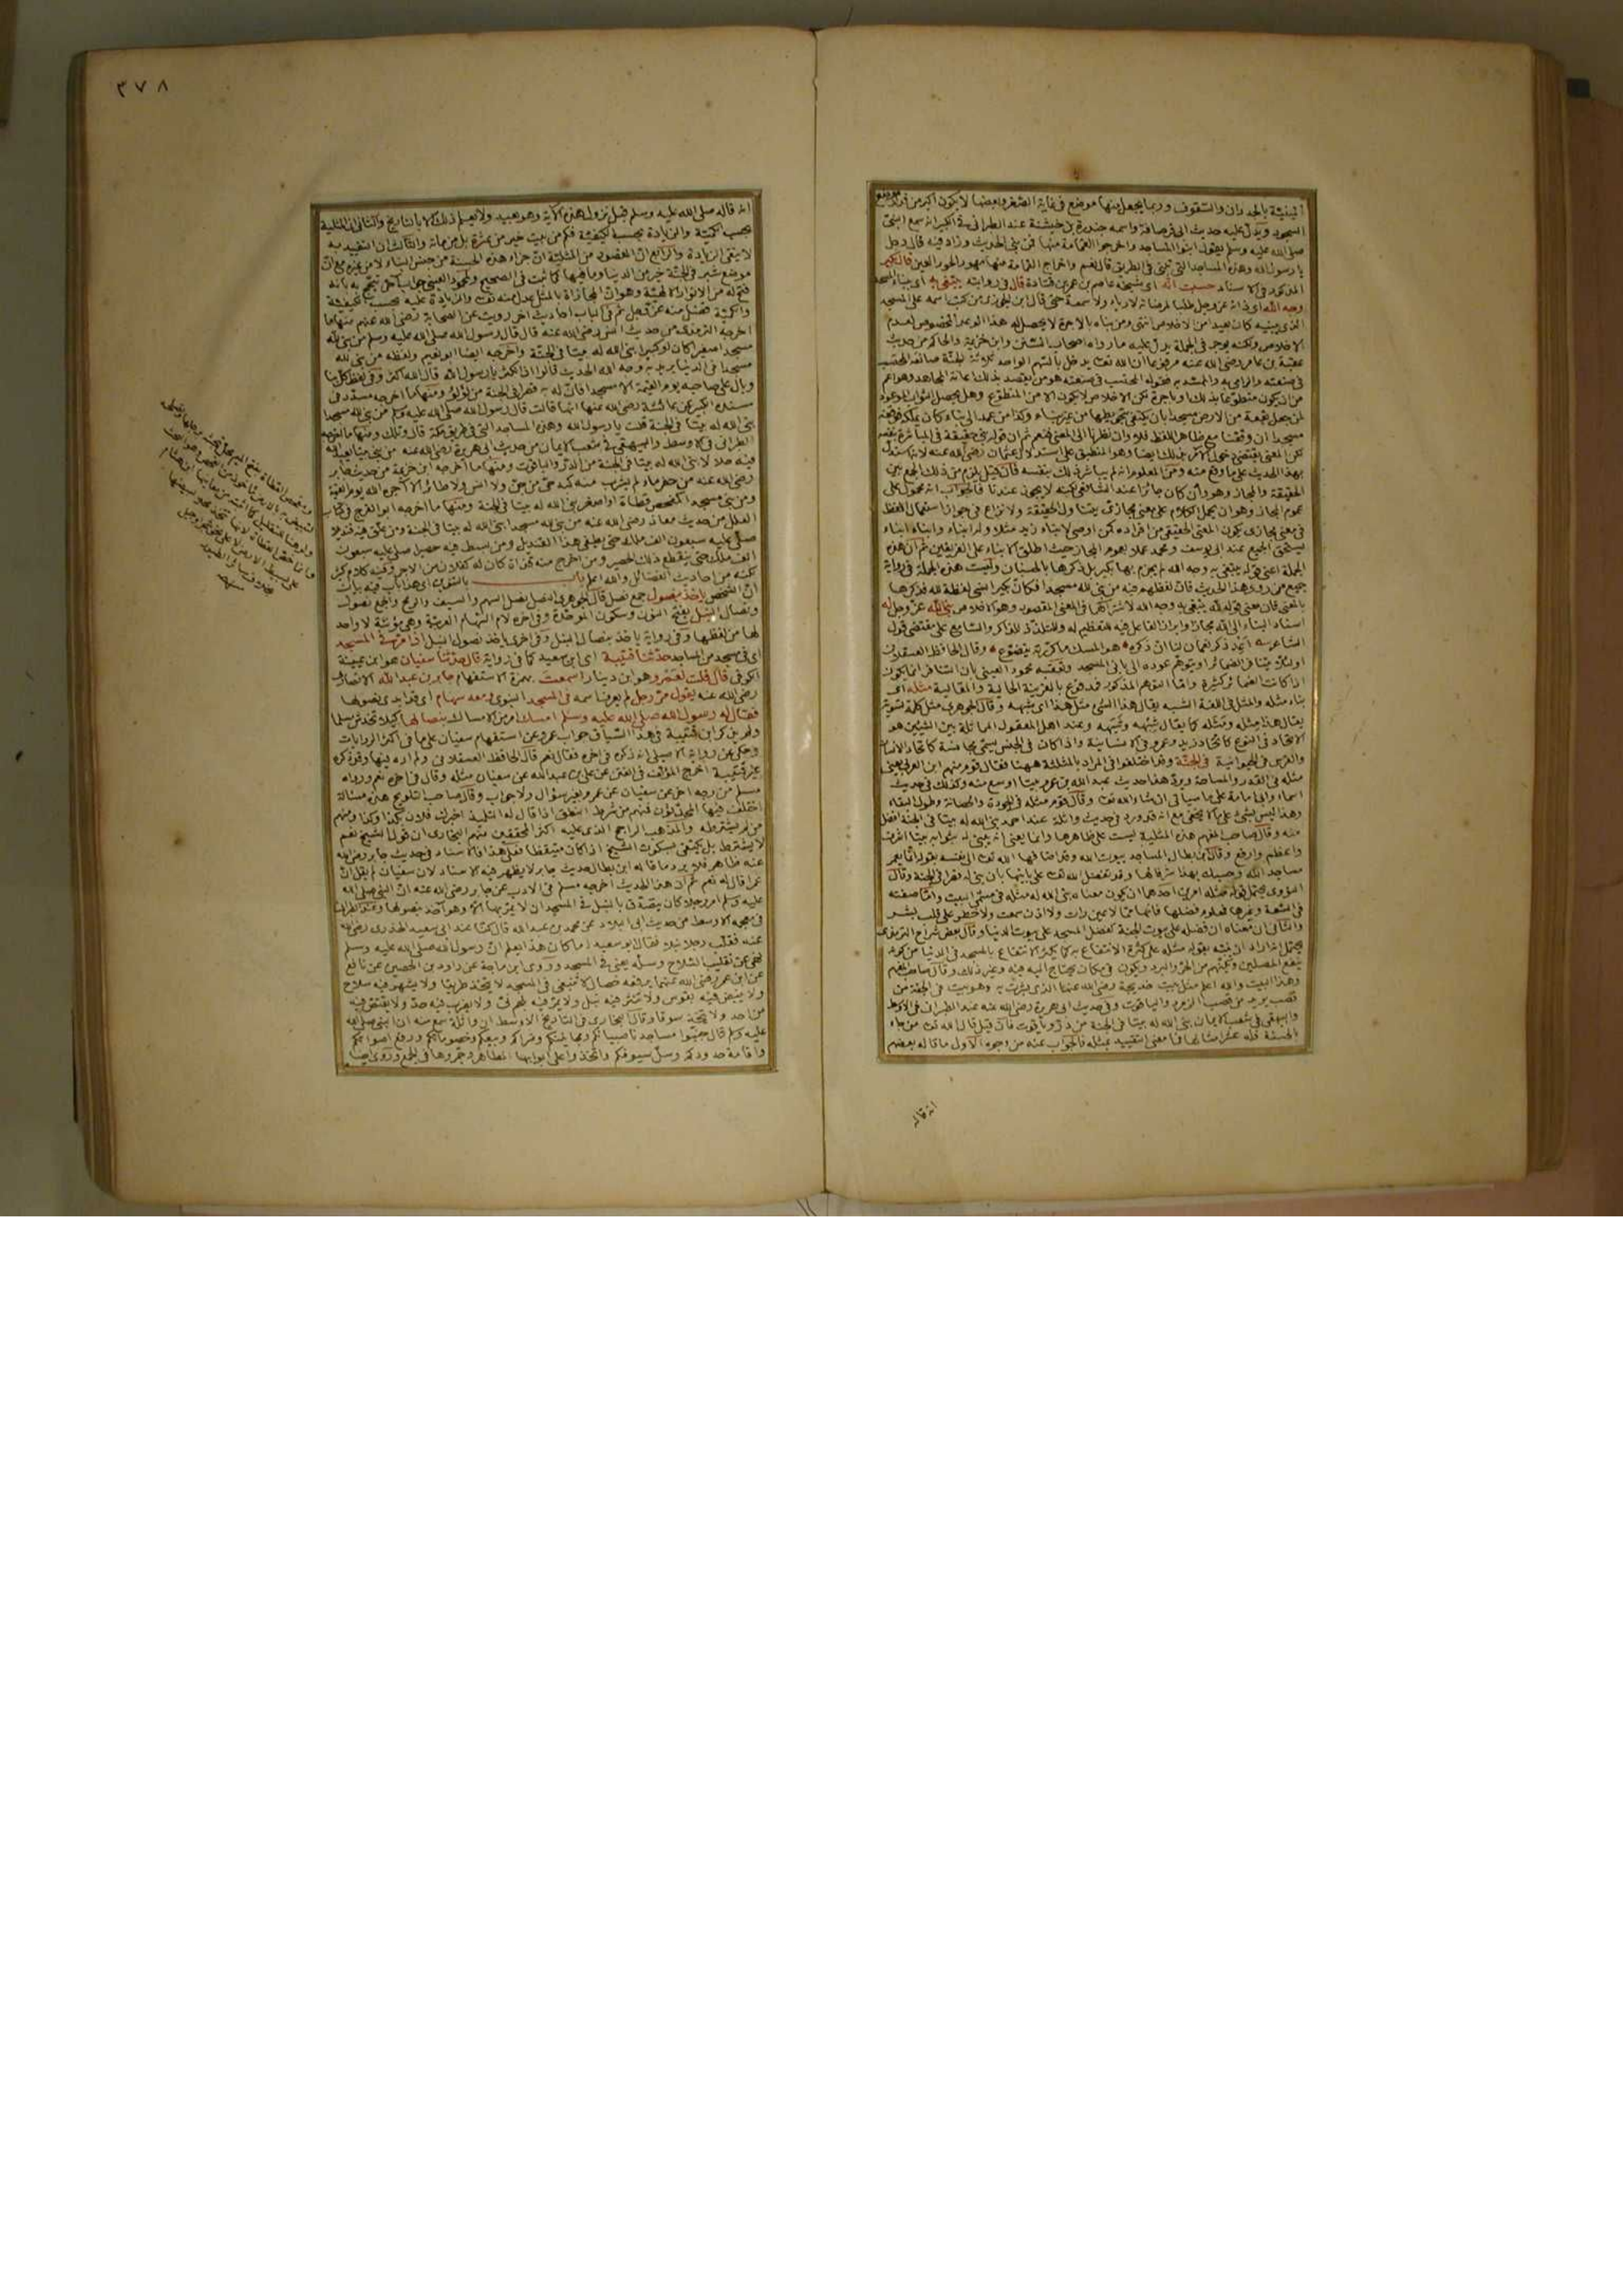 ابنيتة بالجدران والسقوف وربما يجعل بينها موضع في غاية الصغر وبعضها لا يكون اكبر من قدر موضع
السجود ويدل عليه حديث ابي قرصافة واسمه جندرة بن خيشنة عند الطبراني في الكبير انه سمع النبي
صلى الله عليه وسلم يقول ابنوا المساجد واخرجوا القمامة منها فمن بنى الحديث وزاد فيه قال رجل
يا رسول الله وهذه المساجد التي تبنى في الطريق قال نعم واخراج القمامة منها مهور الحور العين قال بكير
المذكور في الاسناد حسبت انه اي شيخه عاصم بن عمر بن قتادة قال في روايته يبتغي به اي ببناء المسجد
وجه الله اي ذاته عز وجل طلبا لمرضاته لا رياء ولا سمعة حتى قال ابن الجوزي من كتب اسمه على المسجد
الذي يبنيه كان بعيدا من الاخلاص انتهى ومن بناه بالاجرة لا يحصل له هذا الوعد المخصوص لعدم
الاخلاص ولكنه يوجر في الجملة يدل عليه ما رواه اصحاب السنن وابن خزيمة والحاكم من حديث
عقبة بن عامر رضي الله عنه مرفوعا ان الله تعالى يدخل بالسهم الواحد ثلاثة الجنة صانعه المحتسب
في صنعته والرامي به والممد به فقوله المحتسب في صنعته هو من يقصد بذلك اعانة المجاهد وهو اعم
من ان يكون متطوعا بذلك او باجرة لكن الاخلاص لا يكون الا من المتطوع وهل يحصل الثواب الموعود
لمن جعل بقعة من الارض مسجدا بان يكتفي بتحويطها من غير بناء وكذا من عمد الى بناء كان يملكه فوقفه
مسجدا ان وقفنا مع ظاهر اللفظ فلا وان نظرنا الى المعنى فنعم ثم ان قوله بنى حقيقة في المباشرة بنفسه
لكن المعنى يقتضي دخول الامر بذلك ايضا وهو المنطبق على استدلال عثمان رضي الله عنه لانه استدل
بهذا الحديث على ما وقع منه ومن المعلوم انه لم يباشر ذلك بنفسه فان قيل يلزم من ذلك الجمع بين
الحقيقة والمجاز وهو وان كان جائزا عند الشافعي لكنه لا يجوز عندنا فالجواب انه محمول على
عموم المجاز وهو ان يحمل الكلام على معنى مجازي يتناول الحقيقة ولا نزاع في جواز استعمال اللفظ
في معنى مجازي يكون المعنى الحقيقي من افراده كمن اوصى لابناء زيد مثلا وله ابناء وابناء ابناء
يستحق الجميع عند ابي يوسف ومحمد عملا بعموم المجاز حيث اطلق الابناء على الفريقين ثم ان هذه
الجملة اعني قوله يبتغي به وجه الله لم يجزم بها بكير بل ذكرها بالحسبان وليست هذه الجملة في رواية
جميع من روى هذا الحديث فان لفظهم فيه من بنى لله مسجدا فكان بكيرا نسي لفظة لله فذكرها
بالمعنى فان معنى قوله لله يبتغي به وجه الله لاشتراكهما في المعنى المقصود وهو الاخلاص بنى الله عز وجل له
اسناد البناء الى الله مجاز وابراز الفاعل فيه لتعظيم له وللتلذذ للذاكر والسامع على مقتضى قول
الشاعر اعد ذكر نعمان لنا ان ذكره هو المسك ما كررته يتضوع وقال الحافظ العسقلاني
اذا كانت الضمائر كثيرة واما التوهم المذكور فمدفوع بالقرينة الحالية والمقالية مثله اي
بناء مثله والمثل في اللغة الشبه يقال هذا الشيء مثل هذا اي شبهه وقال الجوهري مثل كلمة تسوية
يقال هذا مثله ومثله كما يقال شبهه وشبهه وعند اهل المعقول المماثلة بين الشيئين هو
الاتحاد في النوع كاتحاد زيد وعمرو في الانسانية واذا كان في الجنس يسمى مجانسة كاتحاد الانسان
والفرس في الحيوانية في الجنة وقد اختلفوا في المراد بالمثلية ههنا فقال قوم منهم ابن العربي يعني
مثله في القدر والمساحة ويرد هذا حديث عبد الله بن عمرو بيتا اوسع منه وكذلك في حديث
اسماء وابي امامة على ما سياتي ان شاء الله تعالى وقال قوم مثله في الجودة والحصانة وطول البقاء
وهذا ليس بشيء على ما لا يخفى مع انه قد ورد في حديث واثلة عند احمد بنى الله له بيتا في الجنة افضل
منه وقال صاحب المفهم هذه المثلية ليست على ظاهرها وانما يعني انه يبنى له بثوابه بيتا اشرف
واعظم وارفع وقال ابن بطال المساجد بيوت الله وقد اضافها الله تعالى الى نفسه بقوله انما يعمر
مساجد الله وحسبك بهذا شرفا لها وقد تفضل الله تعالى على بانيها بان بنى له قصرا في الجنة وقال
النووي يحتمل قوله مثله امرين احدهما ان يكون معناه بنى الله له مثله في مسمى البيت واما صفته
في السعة وغيرها فمعلوم فضلها فانها مما لا عين رات ولا اذن سمعت ولا خطر على قلب بشر
والثاني ان معناه ان فضله على بيوت الجنة كفضل المسجد على بيوت الدنيا وقال بعض شراح الترمذي
يحتمل انه اراد ان ينبه بقوله مثله على كثرة الانتفاع به كما يكثر الانتفاع بالمسجد في الدنيا
ينفع المصلين ويكنهم من الحر والبرد ويكون في مكان يحتاج اليه فيه وغير ذلك وقال صاحب المفهم
وهذا البيت والله اعلم مثل بيت خديجة رضي الله عنها الذي بشرت به وهو بيت في الجنة من
قصب يريد من قصب الزمرد والياقوت وفي حديث ابي هريرة رضي الله عنه عند الطبراني في الاوسط
والبيهقي في شعب الايمان بنى الله له بيتا في الجنة من در وياقوت فان قيل قال الله تعالى من جاء
بالحسنة فله عشر امثالها فما معنى التقييد بمثله فالجواب عنه من وجوه الاول ما قاله بعضهم
انه قاله
٣٧٨
انه قاله صلى الله عليه وسلم قبل نزول هذه الاية وهو بعيد ولا يعلم ذلك الا بالتاريخ والثاني ان المثلية
بحسب الكمية والزيادة بحسب الكيفية فكم من بيت خير من عشرة بل من مائة والثالث ان التقييد به
لا ينفي الزيادة والرابع ان المقصود من المثلية ان جزاء هذه الحسنة من جنس البناء لا من غيره مع ان
موضع شبر في الجنة خير من الدنيا وما فيها كما ثبت في الصحيح
فتح له من الانوار الالهية وهو ان المجازاة بالمثل عدل منه تعالى والزيادة عليه بحسب الكيفية
والكمية فضل منه عز وجل ثم في الباب احاديث اخر رويت عن الصحابة رضي الله عنهم منها ما
اخرجه الترمذي من حديث انس رضي الله عنه قال قال رسول الله صلى الله عليه وسلم من بنى لله
مسجدا صغيرا كان او كبيرا بنى الله له بيتا في الجنة واخرجه ايضا ابو نعيم ولفظه من بنى لله
مسجدا في الدنيا يريد به وجه الله الحديث قالوا اذا نكثر يا رسول الله قال الله اكثر وفي لفظ كل بناء
وبال على صاحبه يوم القيمة الا مسجدا فان له به قصرا في الجنة من لؤلؤ ومنها ما اخرجه مسدد في
مسنده الكبير عن عائشة رضي الله عنها انها قالت قال رسول الله صلى الله عليه وسلم من بنى لله مسجدا
بنى الله له بيتا في الجنة قلت يا رسول الله وهذه المساجد التي في طريق مكة قال وتلك ومنها ما اخرجه
الطبراني في الاوسط والبيهقي في شعب الايمان من حديث ابي هريرة رضي الله عنه من بنى بيتا يعبد الله
فيه حلالا بنى الله له بيتا في الجنة من الدر والياقوت ومنها ما اخرجه ابن خزيمة من حديث جابر
رضي الله عنه من حفر ماء لم يشرب منه كبد حي من جن ولا انس ولا طائر الا آجره الله يوم القيمة
ومن بنى مسجدا كمفحص قطاة او اصغر بنى الله له بيتا في الجنة ومنها ما اخرجه ابو الفرج في كتاب
العلل من حديث معاذ رضي الله عنه من بنى لله مسجدا بنى الله له بيتا في الجنة ومن علق فيه قنديلا
صلى عليه سبعون الف ملك حتى يطفى هذا القنديل ومن بسط فيه حصيرا صلى عليه سبعون
الف ملك حتى ينقطع ذلك الحصير ومن اخرج منه قذاة كان له كفلان من الاجر وفيه كلام كثير
لكنه من احاديث الفضائل والله اعلم باب بالتنوين اي هذا باب فيه بيان
ان الشخص ياخذ بنصول جمع نصل قال الجوهري النصل نصل السهم والسيف والرمح والجمع نصول
ونصال النبل بفتح النون وسكون الموحدة وفي اخره لام السهام العربية وهي مؤنثة لا واحد
لها من لفظها وفي رواية ياخذ بنصال النبل وفي اخرى ياخذ نصول النبل اذا مر في المسجد
اي في مسجد من المساجد حدثنا قتيبة اي ابن سعيد كما في رواية قال حدثنا سفيان هو ابن عيينة
الكوفي قال قلت لعمرو هو ابن دينار اسمعت بهمزة الاستفهام جابر بن عبد الله الانصاري
رضي الله عنه يقول مر رجل لم يعرف اسمه في المسجد النبوي ومعه سهام اي قد ابدى نصولها
فقال له رسول الله صلى الله عليه وسلم امسك امر من الامساك بنصالها كيلا تخدش مسلما
ولم يذكر ابن قتيبة في هذا السياق جواب عمرو عن استفهام سفيان على ما في اكثر الروايات
وحكي عن رواية الاصيلي انه ذكره في اخره فقال نعم قال الحافظ العسقلاني ولم اره فيها وقد ذكره
غير قتيبة اخرج المؤلف في الفتن عن علي بن عبد الله عن سفيان مثله وقال في اخره نعم ورواه
مسلم من وجه اخر عن سفيان عن عمرو بغير سؤال ولا جواب وقال صاحب التلويح هذه مسالة
اختلف فيها المحدثون فمنهم من شرط النطق اذا قال له التلميذ اخبرك فلان بكذا وكذا ومنهم
من لم يشترطه والمذهب الراجح الذي عليه اكثر المحققين منهم البخاري ان قول الشيخ نعم
لا يشترط بل يكتفى بسكوت الشيخ اذا كان متيقظا فعلى هذا فالاسناد في حديث جابر رضي الله
عنه ظاهر فلا يرد ما قاله ابن بطال حديث جابر لا يظهر فيه الاسناد لان سفيان لم يقل ان
عمرا قال له نعم ثم ان هذا الحديث اخرجه مسلم في الادب عن جابر رضي الله عنه ان النبي صلى الله
عليه وسلم امر رجلا كان يتصدق بالنبل في المسجد ان لا يمر بها الا وهو آخذ بنصولها وعند الطبراني
في معجمه الاوسط من حديث ابي البلاد عن محمد بن عبد الله قال كنا عند ابي سعيد الخدري رضي الله
عنه فقلب رجل نبلا فقال ابو سعيد اما كان هذا يعلم ان رسول الله صلى الله عليه وسلم
نهى عن تقليب السلاح وسله يعني في المسجد وروى ابن ماجة عن داود بن الحصين عن نافع
عن ابن عمر رضي الله عنهما يرفعه خصال لا تنبغي في المسجد لا يتخذ طريقا ولا يشهر فيه سلاح
ولا ينبض فيه بقوس ولا تنثر فيه نبل ولا يمر فيه بلحم نئ ولا يضرب فيه حد ولا يقتص فيه
من احد ولا يتخذ سوقا وقال البخاري في التاريخ الاوسط ان واثلة سمع منه ان النبي صلى الله
عليه وسلم قال جنبوا مساجدنا صبيانكم ومجانينكم وشراءكم وبيعكم وخصوماتكم ورفع اصواتكم
واقامة حدودكم وسل سيوفكم واتخذوا على ابوابها المطاهر وجمروها في الجمع